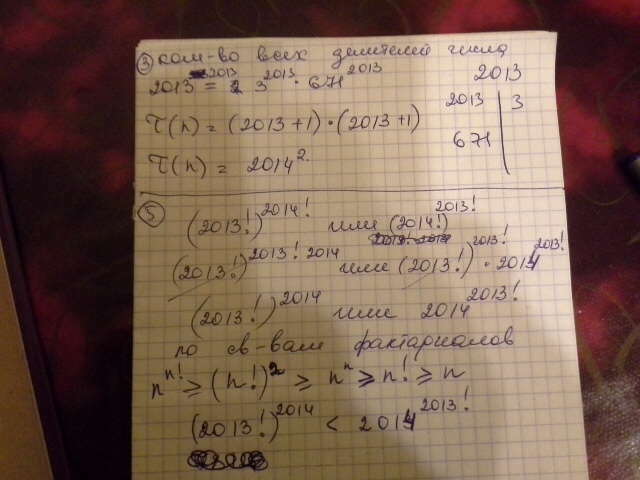 ③ кол-во всех делителей числа
2013²⁰¹³ = 3²⁰¹³ · 671²⁰¹³ 2013
2013 | 3
τ(n) = (2013+1)·(2013+1) 671
τ(n) = 2014².
⑤ (2013!)^2014! или (2014!)^2013!
(2013!)^2013!·2014 или (2013!)^2013! · 2014^2013!
(2013!)^2014 или 2014^2013!
по св-вам факториалов
n^n! ⩾ (n!)² ⩾ n^n ⩾ n! ⩾ n
(2013!)^2014 < 2014^2013!